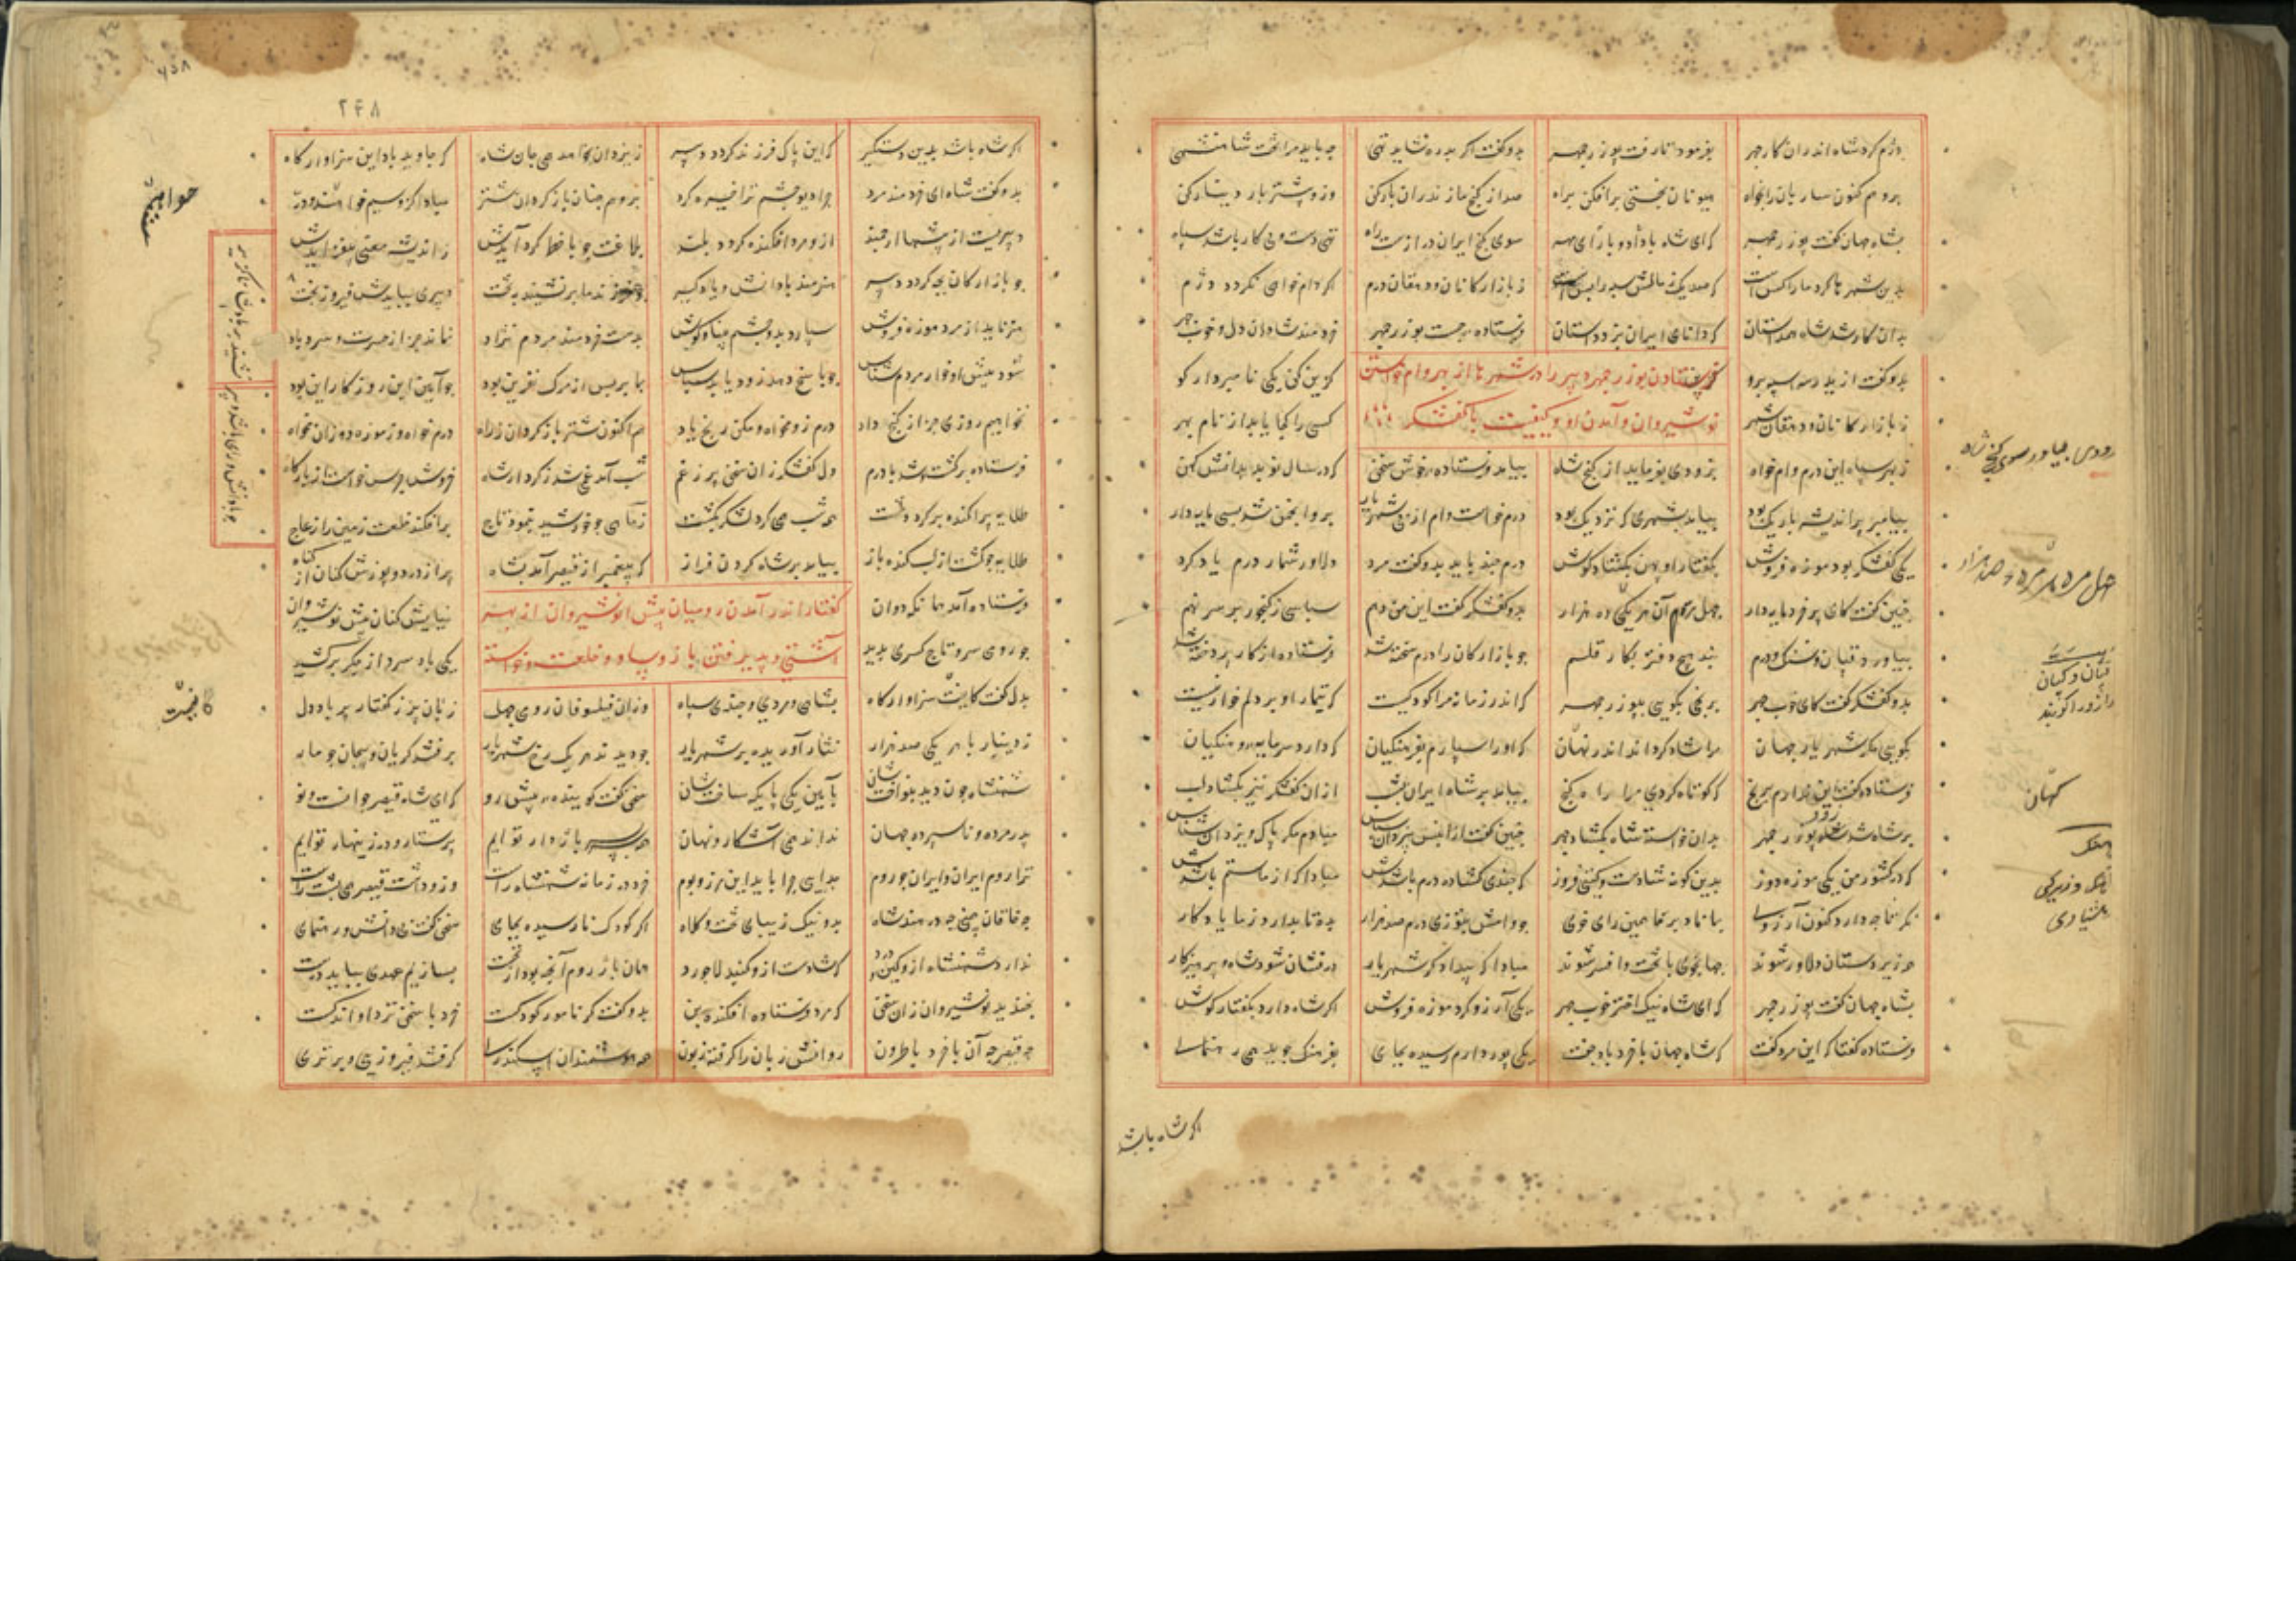 دژم کرد شاه اندران کار چهر بفرمود تا رفت بوزرجمهر بدو گفت اگر بدره شاید تهی چه باید مرا تخت شاهنشهی
برو هم کنون ساربان را بخواه هیونان بختی برافکن براه صد از گنج مازندران بار کن وزو بیشتر بار دینار کن
بشاه جهان گفت بوزرجمهر که ای شاه با داد و با رای و مهر سوی گنج ایران درازست راه تهی دست و بی کار باشد سپاه
بدین شهرها گرد ما در کس است که صد یک ز مالش سپه را بس است ز بازارکانان و دهقان درم اگر وام خواهی نگردد دژم
بدان کار شد شاه همداستان که دانای ایران بزد داستان فرستاده جست بوزرجمهر خردمند شادان دل و خوب چهر
بدو گفت از ایدر سه اسپه برو گزین کن یکی نامبردار گو
فرستادن بوزرجمهر دبیر را در شهرها از بهر وام خواستن
ز بازارکانان و دهقان شهر کسی را کجا یابد از نام بهر
نوشیروان و آمدن او و کیفیت با کفشگر
ز بهر سپاه این درم وام خواه بزودی بفرماید از گنج شاه بیامد فرستاده خوش سخن که در سال نو بد بدانش کهن
پیامبر پراندیشه باریک بود بیامد بشهری که نزدیک بود درم خواست وام از پی شهریار برو انجمن شد بسی مایه دار
یکی کفشگر بود موزه فروش بگفتار او پهن بگشاد گوش درم چند باید بدو گفت مرد دلاور شمار درم یاد کرد
چنین گفت کای پر خرد مایه دار چهل مر درم هر یکی ده هزار بدو کفشگر گفت این من دهم سپاسی ز گنجور بر سر نهم
بیاورد قپان و سنگ و درم نبد هیچ دفتر بکار قلم چو بازارکان را درم سخته شد فرستاده از کار پردخته شد
بدو کفشگر گفت کای خوب چهر برنجی بگویی ببوزرجمهر که اندر زمانه مرا کودکیست که تیمار او بر دلم خوار نیست
بگویی مگر شهریار جهان مرا شاد گرداند اندر نهان که او را سپارم بفرهنگیان که دارد سرمایه و هنگ آن
فرستاده گفت این ندارم برنج که کوتاه کردی مرا راه گنج بیامد بر شاه ایران بشب ازان کفشگر نیز بگشاد لب
بر شاه شد شاد بوزرجمهر بدان خواسته شاه بگشاد چهر چنین گفت ازان پس یزدان سپاس مبادم مگر پاک و یزدان شناس
که در کشور من یکی موزه دوز بدین گونه شادست و گیتی فروز که چندی گشاده درم باشدش مبادا که از ما ستم باشدش
نگر تا چه دارد کنون آرزوی بماناد بر ما همین رای خوی چو وامش بتوزی درم صد هزار بده تا بدارد ز ما یادگار
هر زیردستان دلاور شوند جهانجوی با تخت و افسر شوند مبادا که بیدادگر شهریار درفشان شود شاه و پرهیزکار
بشاه جهان گفت بوزرجمهر که ای شاه نیک اختر خوب چهر یکی آرزو کرد موزه فروش اگر شاه دارد بگفتار گوش
فرستاده گفتا که این مرد گفت که شاه جهان با خرد باد جفت یکی پور دارم رسیده بجای بفرهنگ جوید همی رهنمای
زودی بیاور سوی گنج شاه
قپان و کپان
کهان
هنگ وزیرکی
هشیاری
اگر شاه باشد
۲۴۸
اگر شاه باشد بدین دستگیر که این پاک فرزند گردد دبیر ز یزدان بخواهد همی جان شاه که جاوید باد این سزاوار گاه
بدو گفت شاه ای خردمند مرد چرا دیو چشم ترا خیره کرد برو هم چنان باز گردان شتر مبادا کزو سیم خواهیم و در
چو بازارکان بچه گردد دبیر هنرمند با دانش و یادگیر چو فرزند ما بر نشیند بتخت دبیری ببایدش فیروز بخت
هنر یابد از مرد موزه فروش سپارد بدو چشم بینا و گوش بدست خردمند مردم نژاد نماند جز از حسرت و سرد باد
شود پیش او خوار مردم شناس چو پاسخ دهد زو نیابد سپاس بما بر پس از مرگ نفرین بود چو آیین این روزگار این بود
نخواهیم روزی جز از گنج داد درم زو مخواه و مکن رنج یاد هم اکنون شتر باز گردان ز راه درم خواه وز موزه دوزان مخواه
فرستاده برگشت و شد با درم دل کفشگر زان سخن پر ز غم شب آمد غمی شد ز کردار شاه خروش جرس خواست از بارگاه
طلایه پراکنده بر گرد دشت همه شب همی گرد لشکر بگشت ز ماهی چو خورشید بنمود تاج برافکند خلعت زمین را ز عاج
طلایه چو گشت از لب کنده باز بیامد بر شاه گردن فراز که پیغمبر از قیصر آمد بشاه پر از درد و پوزش کنان از گناه
فرستاده آمد همانگه دوان نیایش کنان پیش نوشیروان
گفتار اندر آمدن رومیان پیش انوشیروان از بهر
چو روی سر و تاج کسری بدید یکی باد سرد از جگر برکشید
آشتی و پذیرفتن باژ و ساو و خلعت و خواسته
بدل گفت کاینت سزاوار گاه بشاهی و مردی و چندی سپاه وزان فیلسوفان رومی چهل زبان پر ز گفتار پر باد دل
ز دینار با هر یکی صد هزار نثار آوریده بر شهریار چو دیدند هر یک رخ شهریار برفتند گریان و پیچان چو مار
شهنشاه چون دید بنواختشان بآیین یکی پایگه ساختشان سخن گفت گوینده پیش رو که ای شاه قیصر جوانست و نو
پدر مرده و ناسپرده جهان نداند همی آشکار و نهان همه سر بسر باژدار توایم پرستار و در زینهار توایم
ترا روم ایران و ایران چو روم جدایی چرا باید این مرز و بوم خرد در زمانه شهنشاه راست وزو داشت قیصر همی پشت راست
چه خاقان چینی چه در هند شاه بدو نیک زیبای تخت و کلاه اگر کودک نارسیده بجای سخن گفت بی دانش و رهنمای
ندارد شهنشاه ازو کین و درد که شادست ازو گنبد لاجورد همان باژ روم آنچه بود از نخست بسازیم عهدی بباید درست
بخندید نوشیروان زان سخن که مرد فرستاده افکند بن بدو گفت گر نامور کودکست خرد با سخن نزد او اندکست
چه قیصر چه آن با خرد باطرون روانش زبان را گرفته زبون همه هوشمندان اسکندری گرفتند فیروزی و برتری